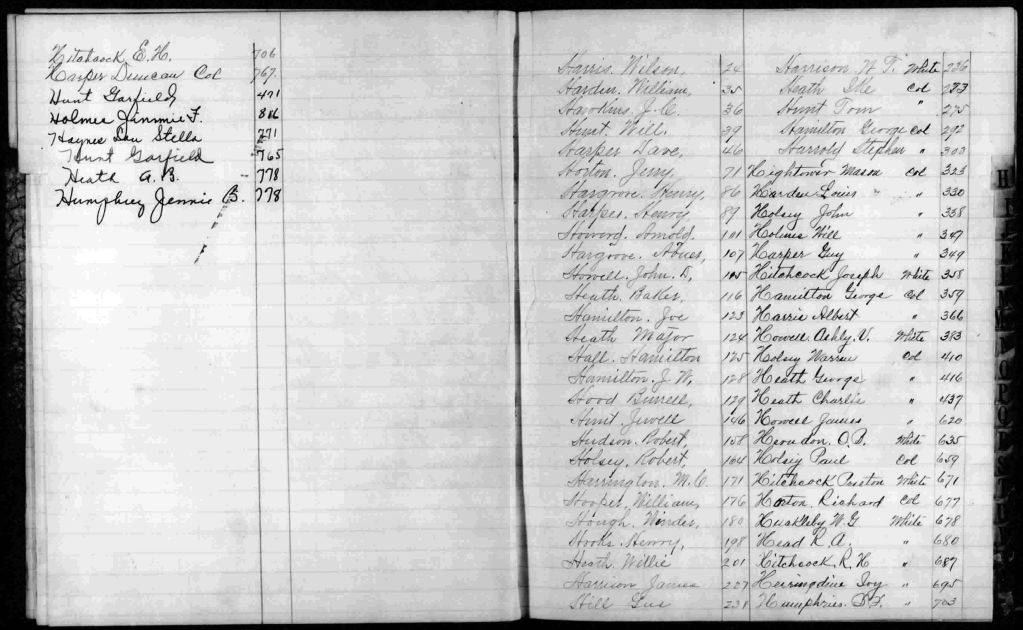 Hitchcock E. H. 706
Harper Duncan Col 767
Hunt Garfield 471
Holmes Jimmie F. 816
Haynes Lou Stella 771
Hunt Garfield 765
Heath A. B. 778
Humphrey Jennie B. 778
Harris. Wilson, 24
Harden. William, 35
Hawkins. J. C. 36
Hunt Will. 39
Harper Dave, 46
Horton. Jerry, 71
Hargrove. Henry, 86
Harper. Henry, 89
Howard. Arnold. 101
Hargrove. Abner, 107
Howell. John. D, 115
Heath. Baker, 116
Hamilton. Joe 123
Heath Major 124
Hall. Hamilton 125
Hamilton. J. W, 128
Hood Burrell, 129
Hunt Jewell 146
Hudson. Robert, 158
Holsey. Robert, 164
Harrington. M. C. 171
Hooper. William, 176
Hough. Winder, 180
Hooks. Henry, 198
Heath. Willie 201
Harrison James 227
Hill Gus 231
Harrison. W. T. White 236
Heath Col 273
Hunt Tom " 275
Hamilton George Col 292
Harrold Stephen " 303
Hightower Mason Col 323
Harden Louis " " 330
Holsey John " 338
Holmes Will " 347
Harper Guy " 349
Hitchcock Joseph White 358
Hamilton George Col 359
Harris Albert " 366
Howell. Ashly. V. White 383
Holsey Warren Col 410
Heath George " 416
Heath Charlie " 437
Howell James " 620
Herndon. O. D. White 635
Holsey Paul Col 659
Hitchcock Preston White 671
Horton. Richard Col 677
W G White 678
Head R. A. " 680
Hitchcock, R. H " 687
Herringdine Ivy " 695
Humphries. D. D. " 703
H